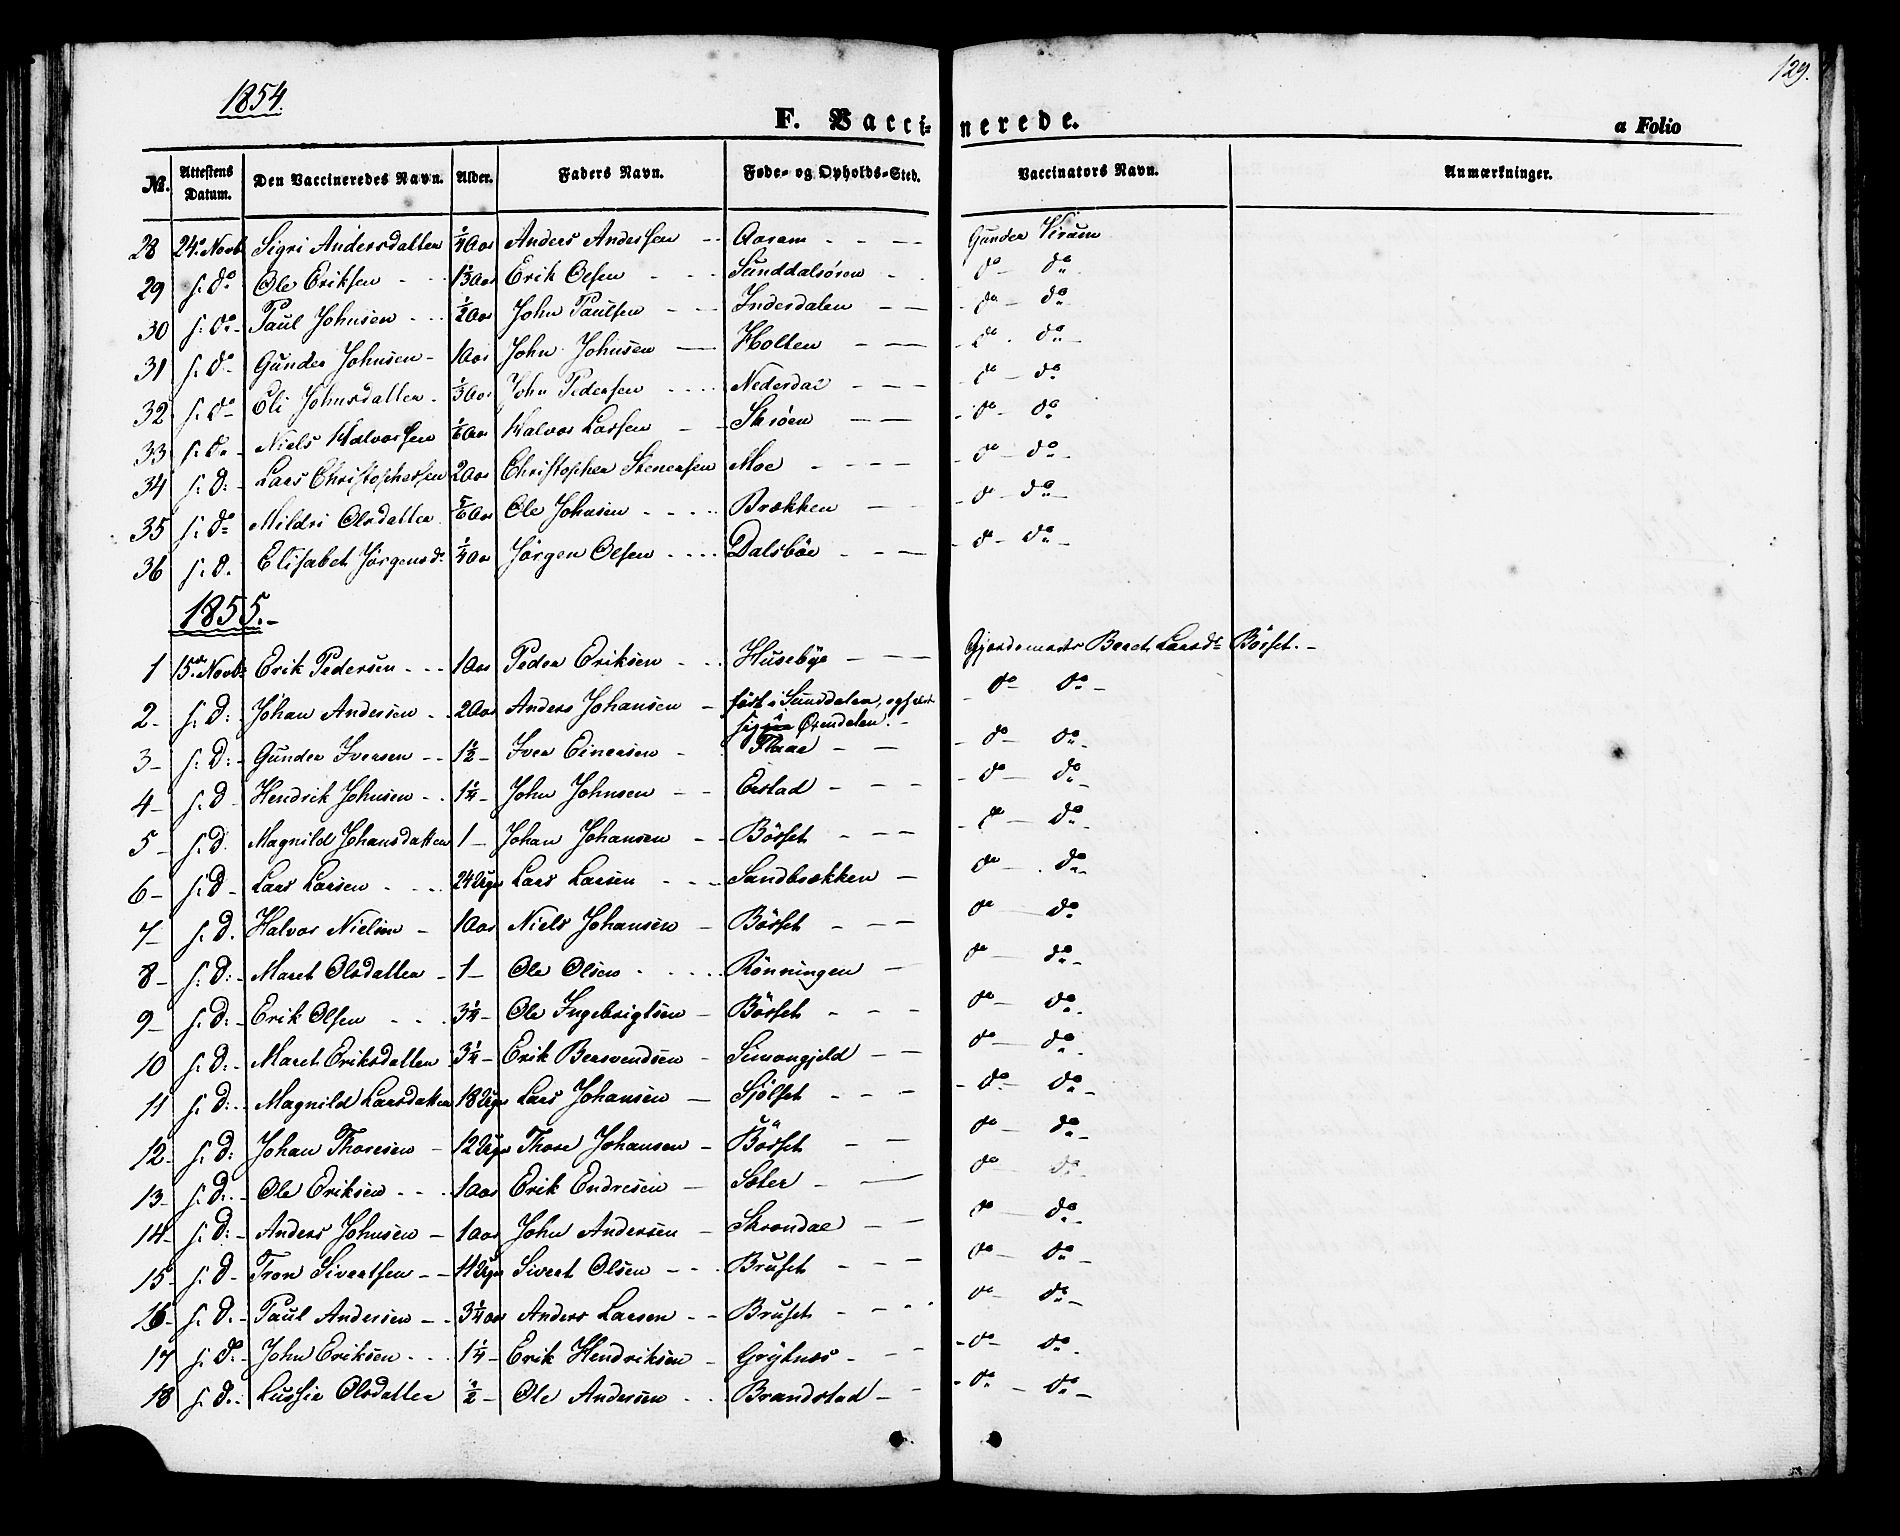 129.
1854.
F. Vaccinerede.
a Folio
No. Attestens Datum. Den Vaccineredes Navn. Alder. Faders Navn. Føde- og Opholds-Sted. Vaccinators Navn. Anmærkninger.
28 24de Novb. Sigri Andersdatter 1/4 Aar Anders Andersen - - Aaram - - - Gunder Virum
29 s. do Ole Eriksen - - 1 1/3 Aar Erik Olsen - - - Sunddalsøren - do - do
30 s. do - Paul Johnsen - - - 1/2 Aar John Paulsen - - Inderdalen - - - do - do -
31 s. do - Gunder Johnsen - 1 Aar John Johnsen - Holten - - - - do - do -
32 s. do - Eli Johnsdatter - 1/3 Aar John Pedersen - - - - Nederdal - - - - do - do
33 s. do - Niels Halvorsen 1/6 Aar Halvor Larsen - - Skrøen - - - do - do
34 s. d: - Lars Christophersen 2 Aar Christopher Stenersen Moe - - - - - do - do -
35 s. do - Mildri Olsdatter 5/6 Aar Ole Johnsen - - - - Brækken - - - do - do -
36 s. d. Elisabet Jørgensd. 1/4 Aar Jörgen Olsen - - - - Dalsböe - - - - do - do -
1855. -
1 15de Novb: Erik Pedersen - - - 1 Aar Peder Eriksen - - - Husebye - - - Gjordemoder Beret Larsdr Börset. -
2 - s. d: Johan Andersen - - 2 Aar Anders Johansen - født i Sunddalen, - do - do -
Öxendalen. -
3 - s. d: - Gunder Iversen - - 1 1/2 - Iver Einersen - Flaae - - - do - do -
4 - s. d - Hendrik Johnsen - - 1 1/4 - John Johnsen - - Erstad - - - - do - do -
5 - s. d. Magnild Johansdatter 1 - Johan Johansen - - Börset - - - - do - do -
6 - s. d - Lars Larsen - - - - 24 Uger Lars Larsen - - - Sandbrækken - do - do -
7 - s. d. Halvor Nielsen - 1 Aar Niels Johansen - Börset - - - do - do
8 - s. d: - Maret Olsdatter - 1 - Ole Olsen - - - - - Rönningen - do - do -
9 - s. d: - Erik Olsen - - - 3 1/4 - Ole Ingebrigtsen - Börset - - - do - do
10 s. d: - Maret Eriksdatter 3 1/4 - Erik Bersvendsen - Simongjeld - - do - do -
11 s. d: - Magnild Larsdatter 18 Uger Lars Johansen - Sjölset - - - - do - do -
12 - s. d: Johan Thoresen - 12 Uger Thore Johansen - Börset - - do - do -
13 - s. d: - Ole Eriksen - - - 1 Aar Erik Endresen - Sæter - - do - do -
14 - s. d: - Anders Johnsen - 1 Aar John Andersen - Skrondal - - do - do -
15 - s. d - Tron Sivertsen - - 11 Uger Sivert Olsen - - - Bruset - - - do - do -
16 - s. d. - Paul Andersen - - 3 1/4 Aar Anders Larsen - - Bruset - - - - do - do -
17 s. do - John Eriksen - - - 1 1/4 - Erik Hendriksen - Grytnæs - - - - do - do -
18 s. d. - Lussie Olsdatter 1/2 - Ole Andersen - - Brandstad - - - do - do -